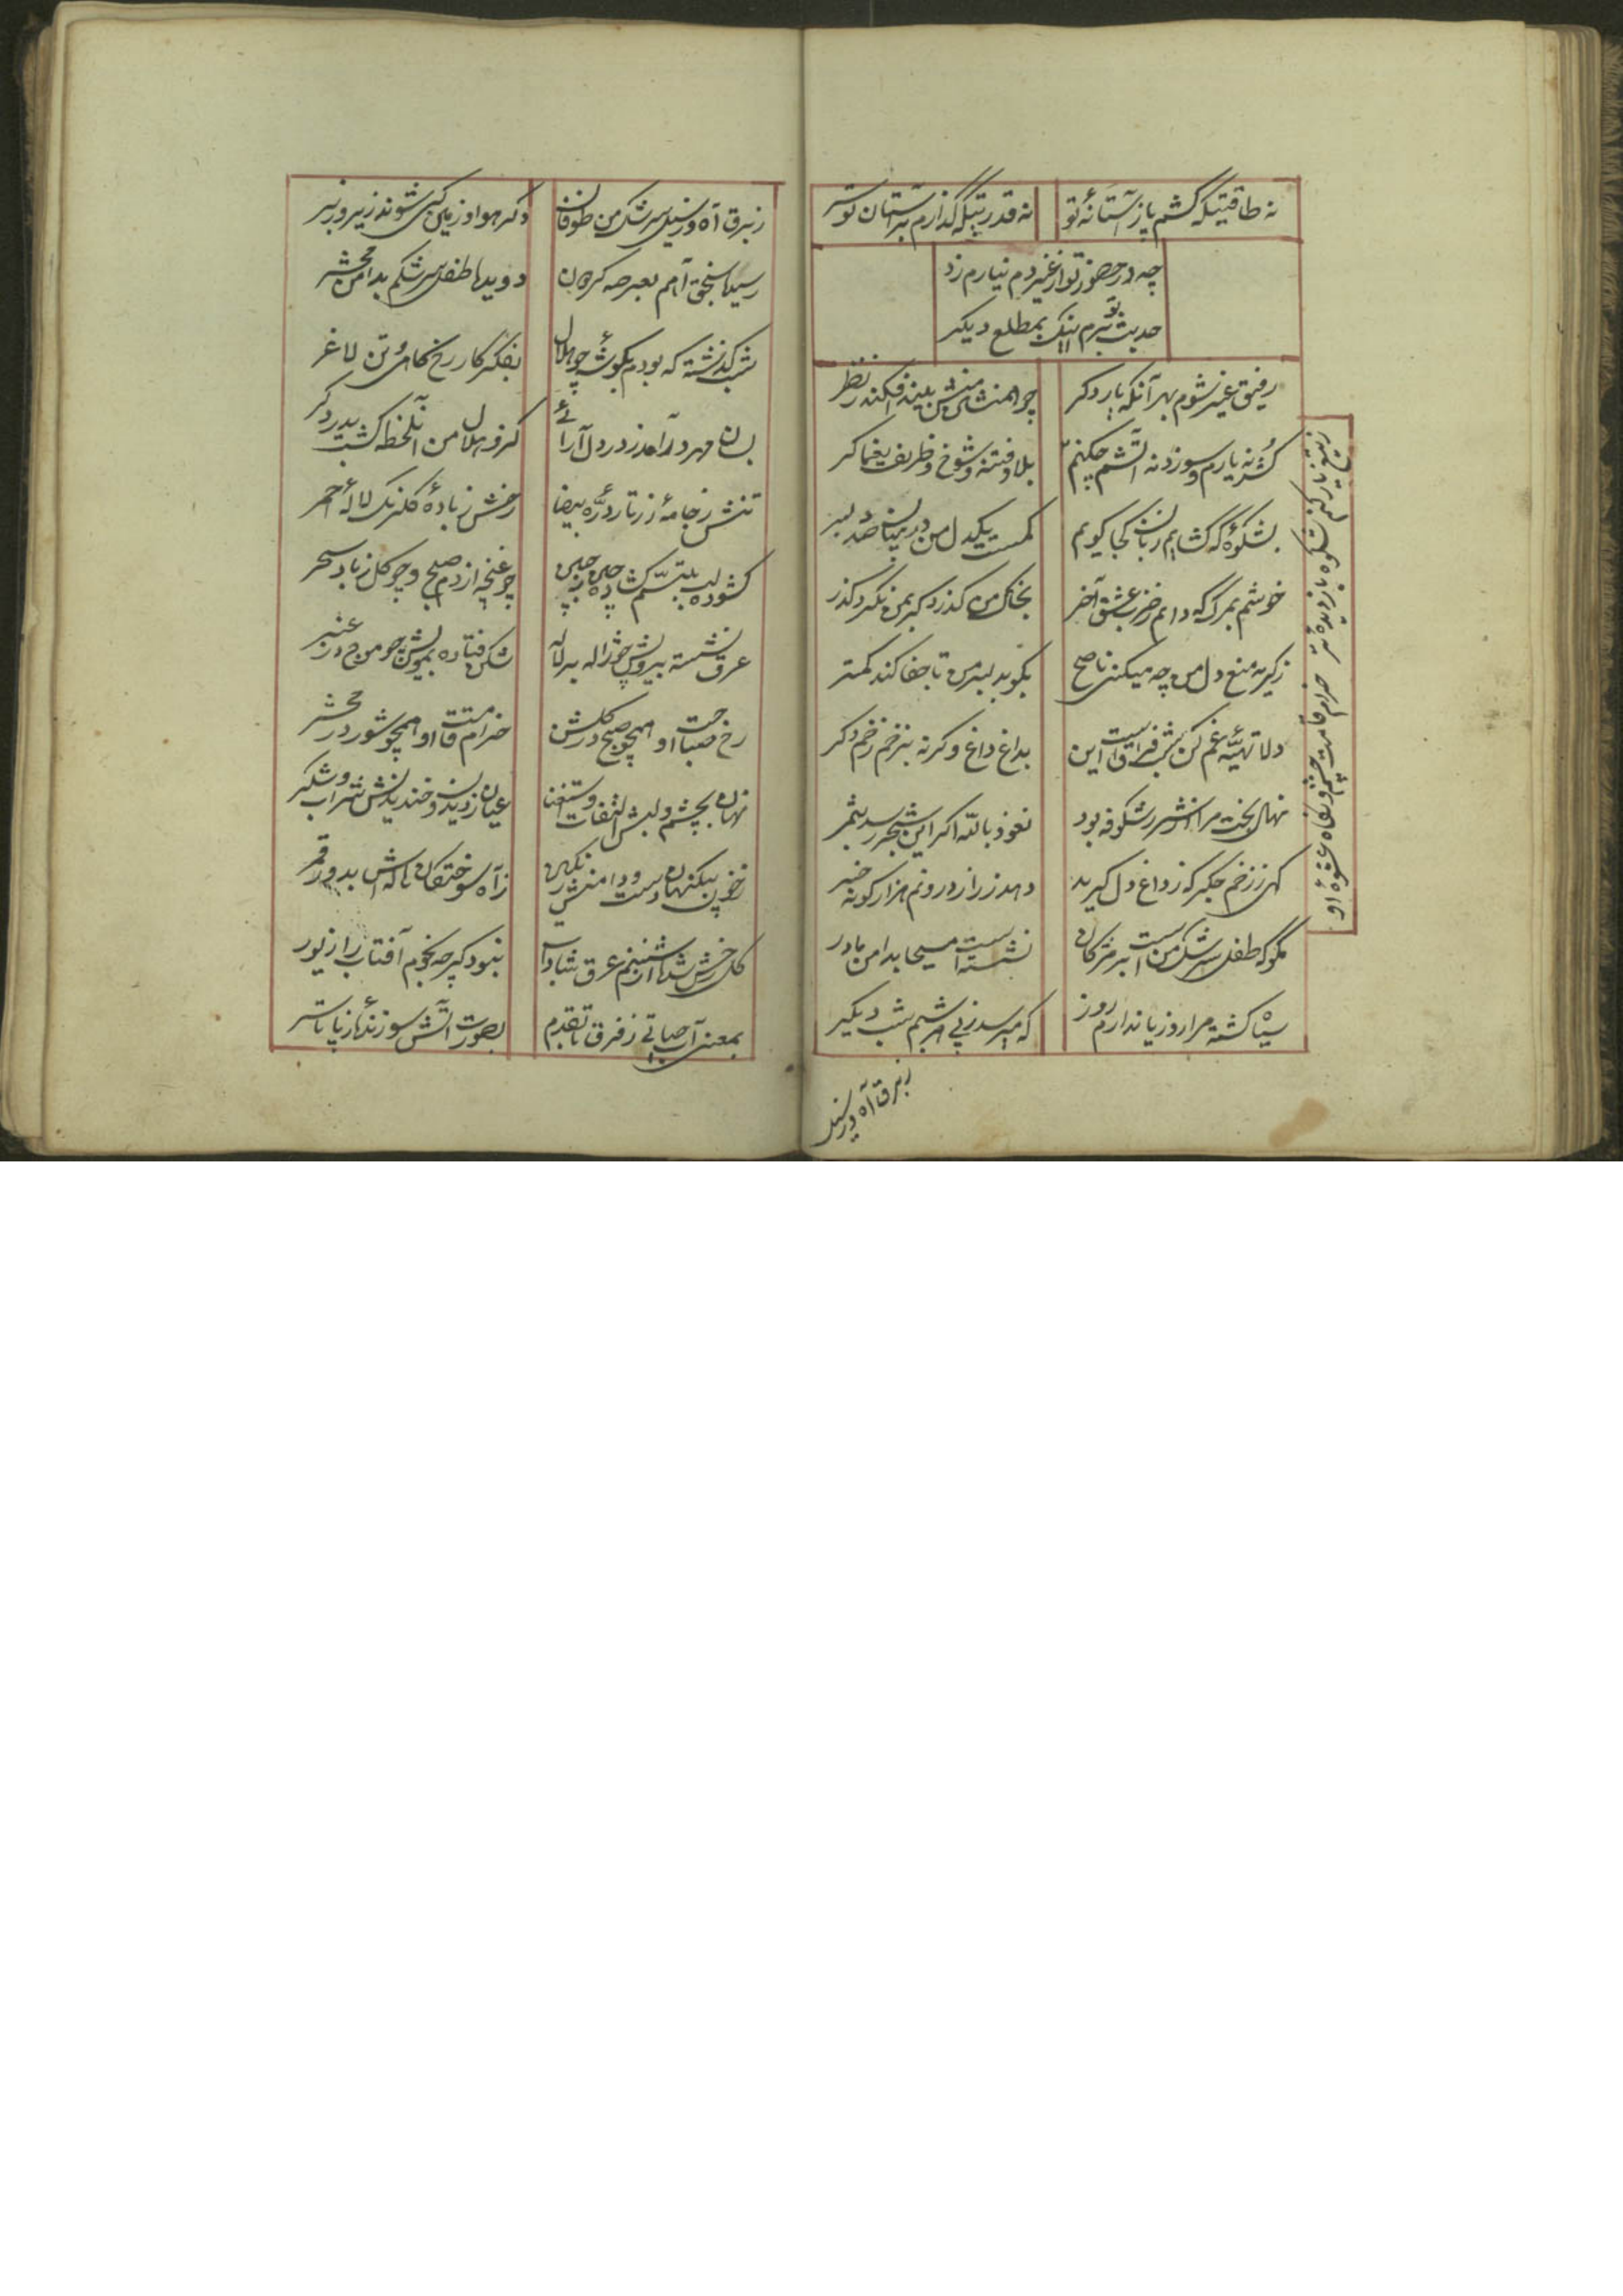 نه طاقتیکه کشم پا ز آستانهٔ تو
نه قدرتیکه گذارم بر آستان تو سر
چه در حضور تو از غیر دم نیارم زد
حدیث تو ببرم اینک بمطلع دیکر
رفیق غیر شوم بهر آنکه یار دکر
چو همنشین منش بیند افکند ز نظر
کُشد نه یارم و سوزد نه آتشم چکنم
بلا و فتنه و شوخ و ظریف یغماکر
بشکوهٔ که گشایم زبان کجا کویم
کمست یکدل من در میان صد دلبر
خوشم بمرک که دانم ز ضرب عشق آخر
بخاک من کذرد کر بمن نکرد کذر
ز کریه منع دل من چه میکنی ناصح
بکو بدلبر من تا جفا کند کمتر
دلا تهیّهٔ غم کن شب فراقست این
بداغ داغ و کرنه بزخم زخم دکر
نهال بخت مرا از شرر شکوفه بود
نعوذ بالله اکر این شجر رسد بثمر
کهی ز زخم جکر که ز داغ دل کیرید
دهد ز راز درونم هزار کونه خبر
مکو که طفل سرشک منست بر مژکان
نشسته است مسیحا بدامن مادر
سیاه کشته مرا روز یا ندارم روز
که میرسد ز پی هر شبم شب دیکر
ز برق آه و ز سیل
ز برق آه و ز سیل سرشک من طوفان
دکر هوا و زمین کی شوند زیر و زبر
رسید سنجق آهم بعرصه کردون
دوید طفل سرشکم بدامن محشر
شب کذشته که بودم بکوشهٔ چو هلال
بفکر کار رخ کاه و تن لاغر
بسان مهر در آمد ز در دل آرائی
کزو هلال من آنلحظه کشت بدر دکر
تنش ز جامهٔ زرتار درّهٔ بیضا
رخش ز بادهٔ کلرنک لالهٔ احمر
کشوده لب بتبسّم کشاده چین ز جبین
چو غنچه از دم صبح و چو کل ز باد سحر
عرق نشسته برویش چو ژاله بر لاله
شکن فتاده بمویش چو موج در عنبر
رخ صباحت او همچو صبح در کلشن
خرام قامت او همچو شور در محشر
نهان بچشم و لبش التفات و استغنا
عیان ز دیدن و خندیدنش شراب و شکر
ز خون بیکنهان دست و دامنش رنکین
ز آه سوختکان هاله اش بدور قمر
کل رخش شده از شبنم عرق شاداب
نبود کرچه نجوم آفتاب را زیور
بمعنی آب حیاتی ز فرق تا بقدم
بصورت آتش سوزندهٔ ز پا تا سر